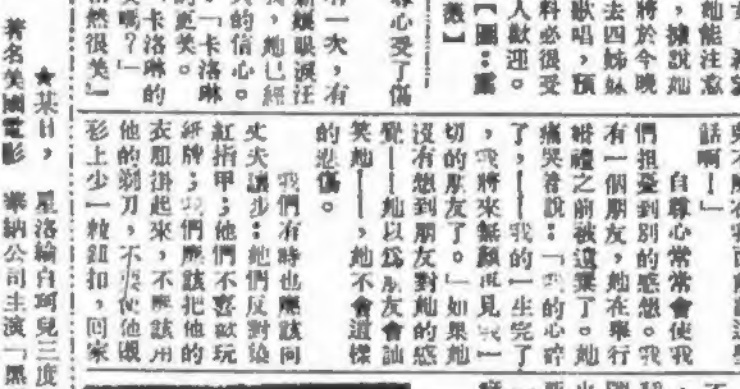 她能注意
，據說她
將於今晚
去四姊妹
歌唱，預
料必很受
人歡迎。
【圖：露
薇】
尊心受了傷
有一次，有
眼淚汪
，她已經
的信心。
「卡洛琳
的更美。
卡洛琳的
嗎？」
然很美」
話啊！」
自尊心常常會使我
們担憂到別的感想。我
有一個朋友，她在舉行
婚禮之前被遺棄了。她
痛哭着說：「我的心碎
了，——我的一生完了
，我將來無顏再見我一
切的朋友了。」如果她
沒有想到朋友對她的感
覺——她以爲朋友會訕
笑她——，她不會這樣
的悲傷。
我們有時也應該向
丈夫讓步：他們反對
紅指甲；他們不喜歡玩
紙牌；我們應該把他的
衣服掛起來，不應該用
他的剃刀，不要使他襯
衫上少一粒鈕扣，回家
★某日，星洛綸白珂兒三度
著名美國電影 華納公司主演「黑